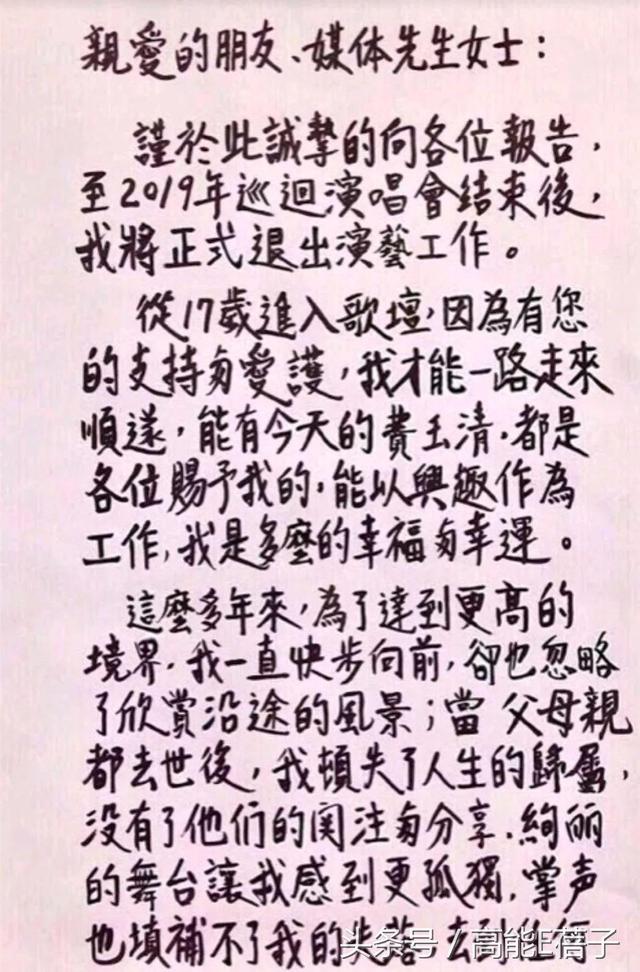 親愛的朋友、媒体先生女士：
謹於此誠摯的向各位報告，
至2019年巡迴演唱會结束後，
我將正式退出演藝工作。
從17歲進入歌壇，因為有您
的支持与愛護，我才能一路走來
順遂，能有今天的費玉清，都是
各位賜予我的，能以興趣作為
工作，我是多麼的幸福与幸運。
這麼多年來，為了達到更高的
境界，我一直快步向前，卻也忽略
了欣賞沿途的風景；當父母親
都去世後，我頓失了人生的歸屬，
没有了他们的関注与分享，絢丽
的舞台讓我感到更孤獨，掌声
也填補不了我的失落 去到
头条号 / 高能E蓓子